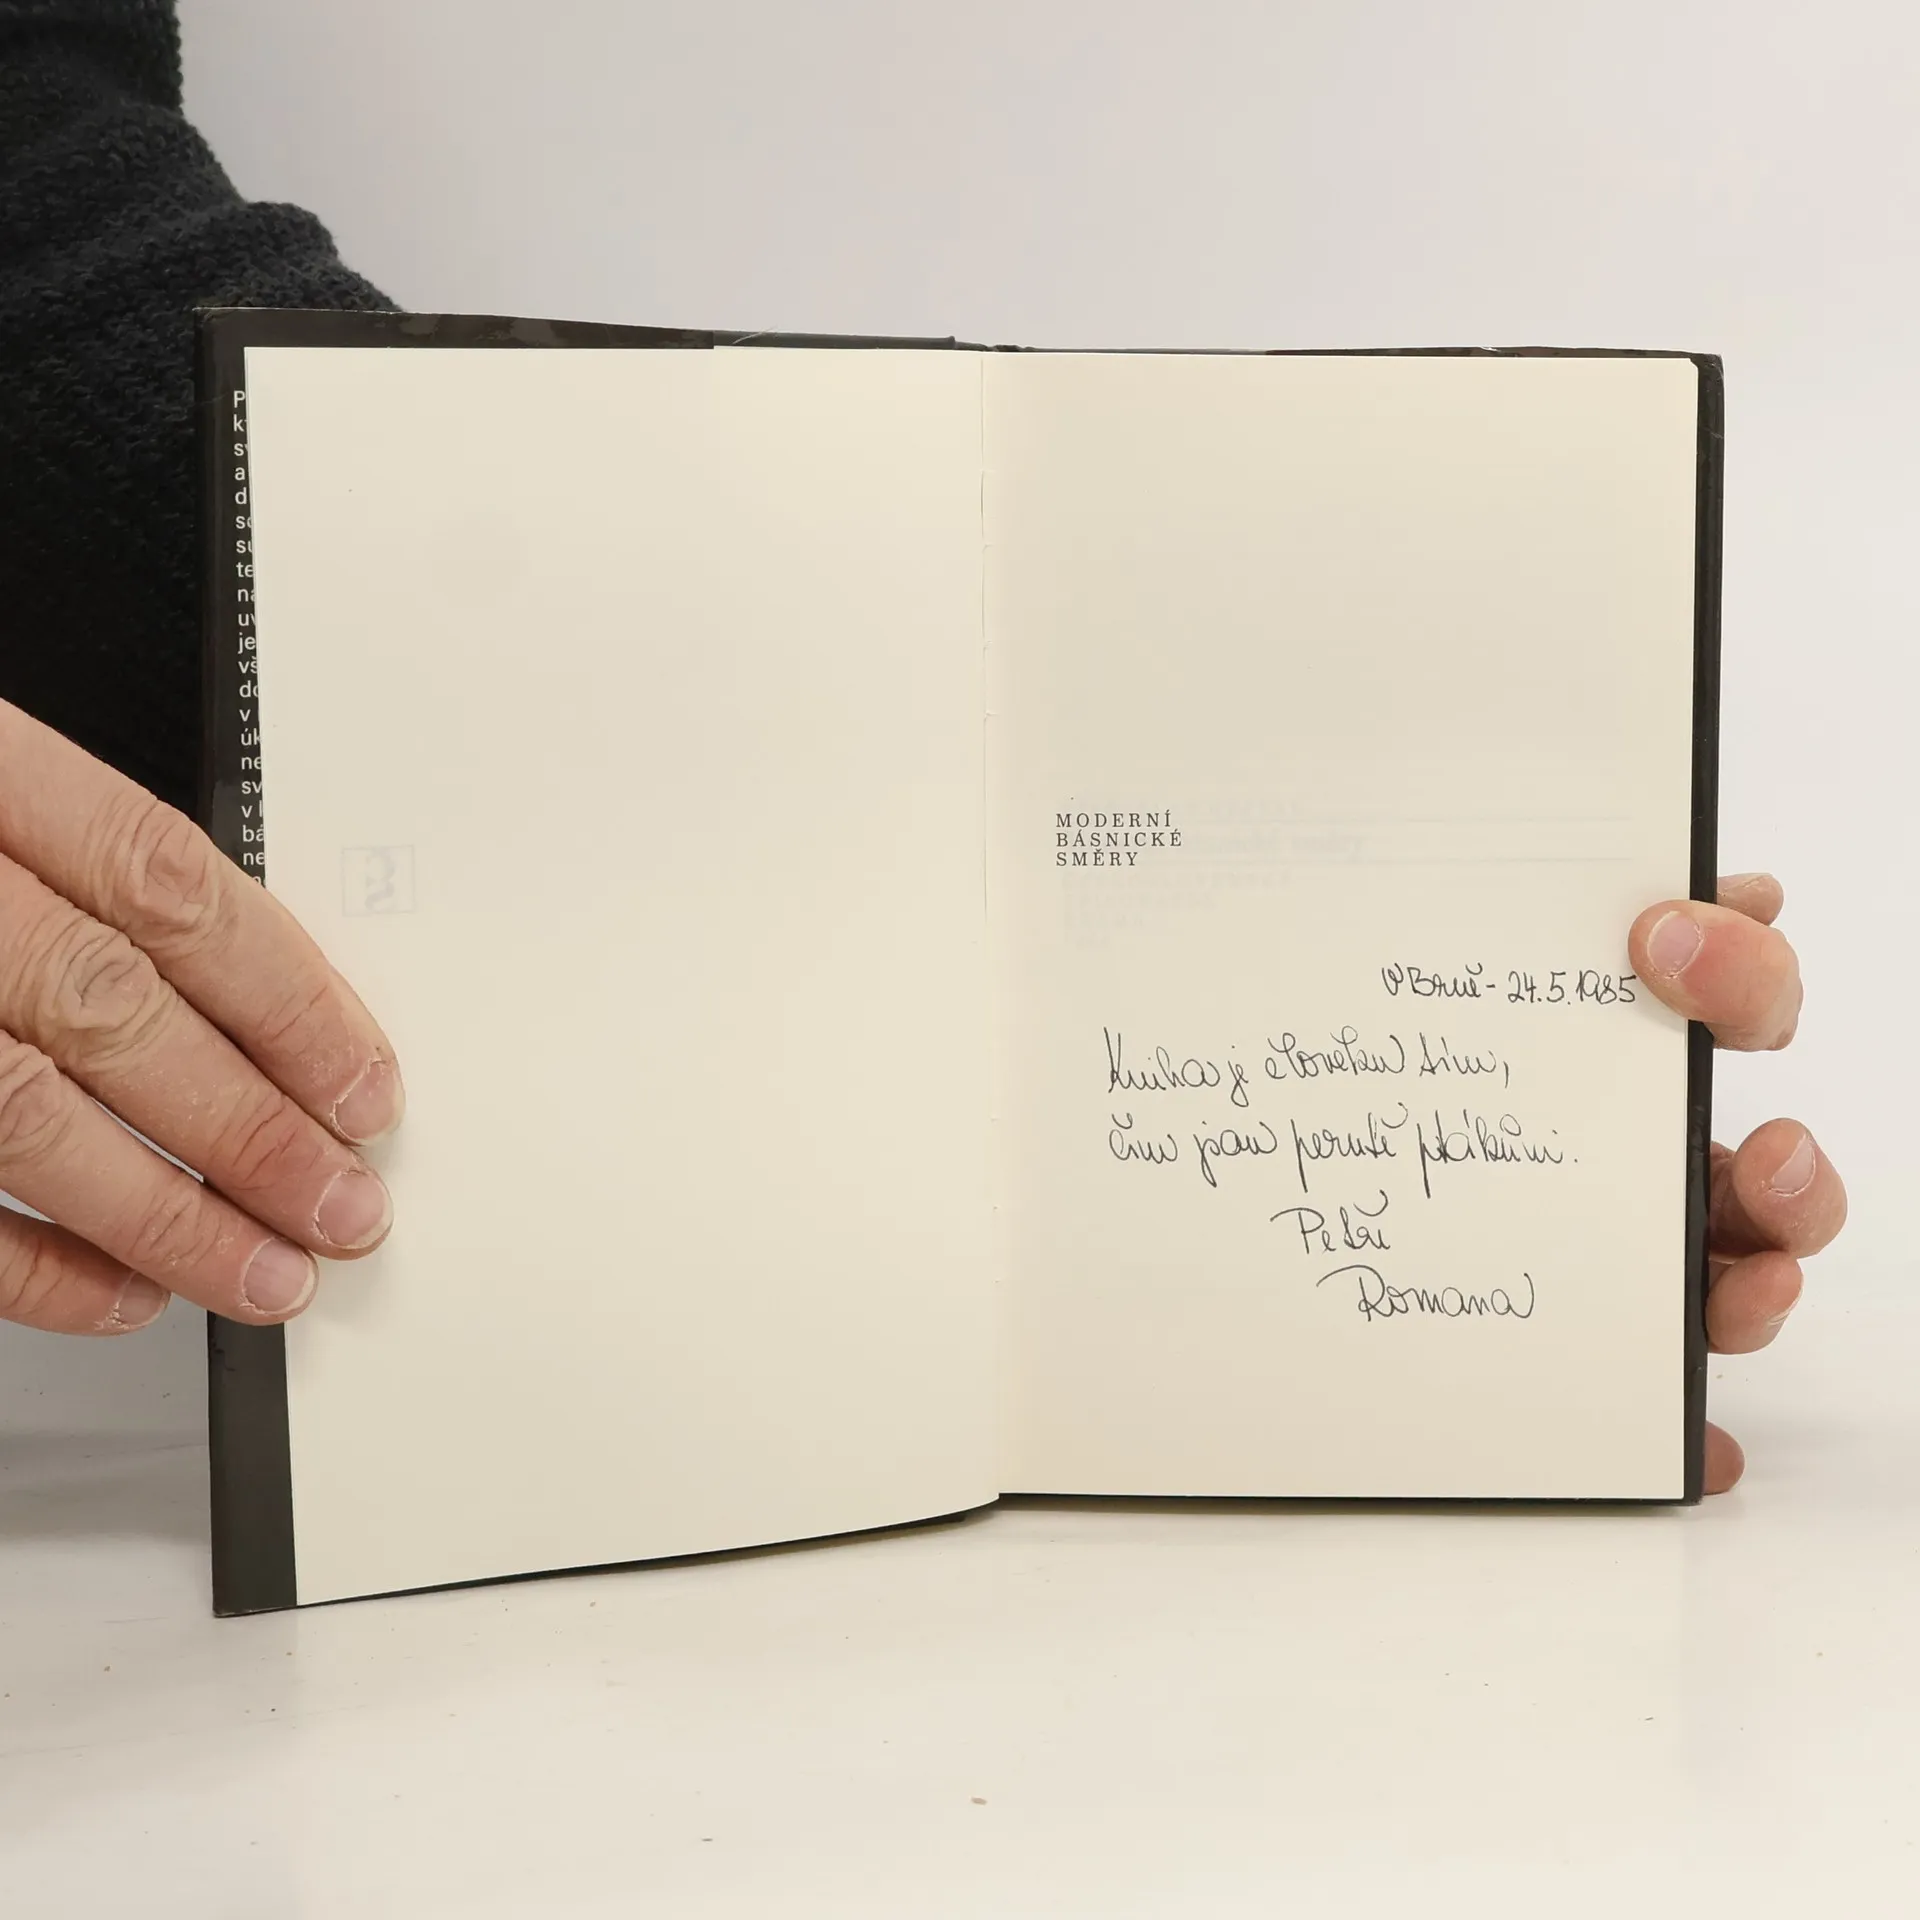 P
k
sv
a
d
so
su
te
na
uv
je
vš
do
v
úk
ne
sv
v l
bá
ne
MODERNÍ
BÁSNICKÉ
SMĚRY
V Brně - 24.5.1985
Kniha je člověku tím,
čím jsou perutě ptákům.
Petře
Romana